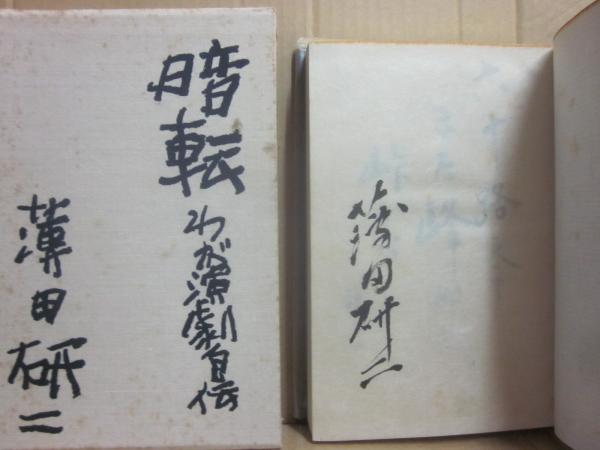 暗転
わが演劇自伝
薄田研二
薄田研二